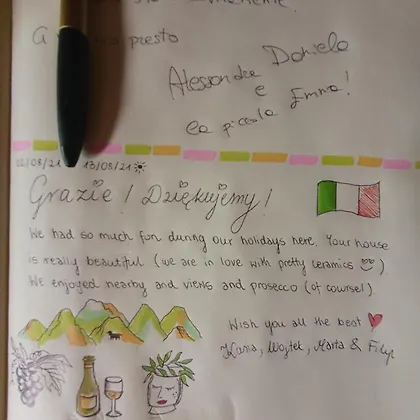 presto
Daniele
Alessandra e
la piccola Emma!
02/08/21 13/08/21
Grazie! Dziękujemy!
We had so much fun during our holidays here. Your house
is really beautiful (we are in love with pretty ceramics).
We enjoyed nearby and views and prosecco (of course!)
Wish you all the best
Kasia, Wojtek, Marta & Filip